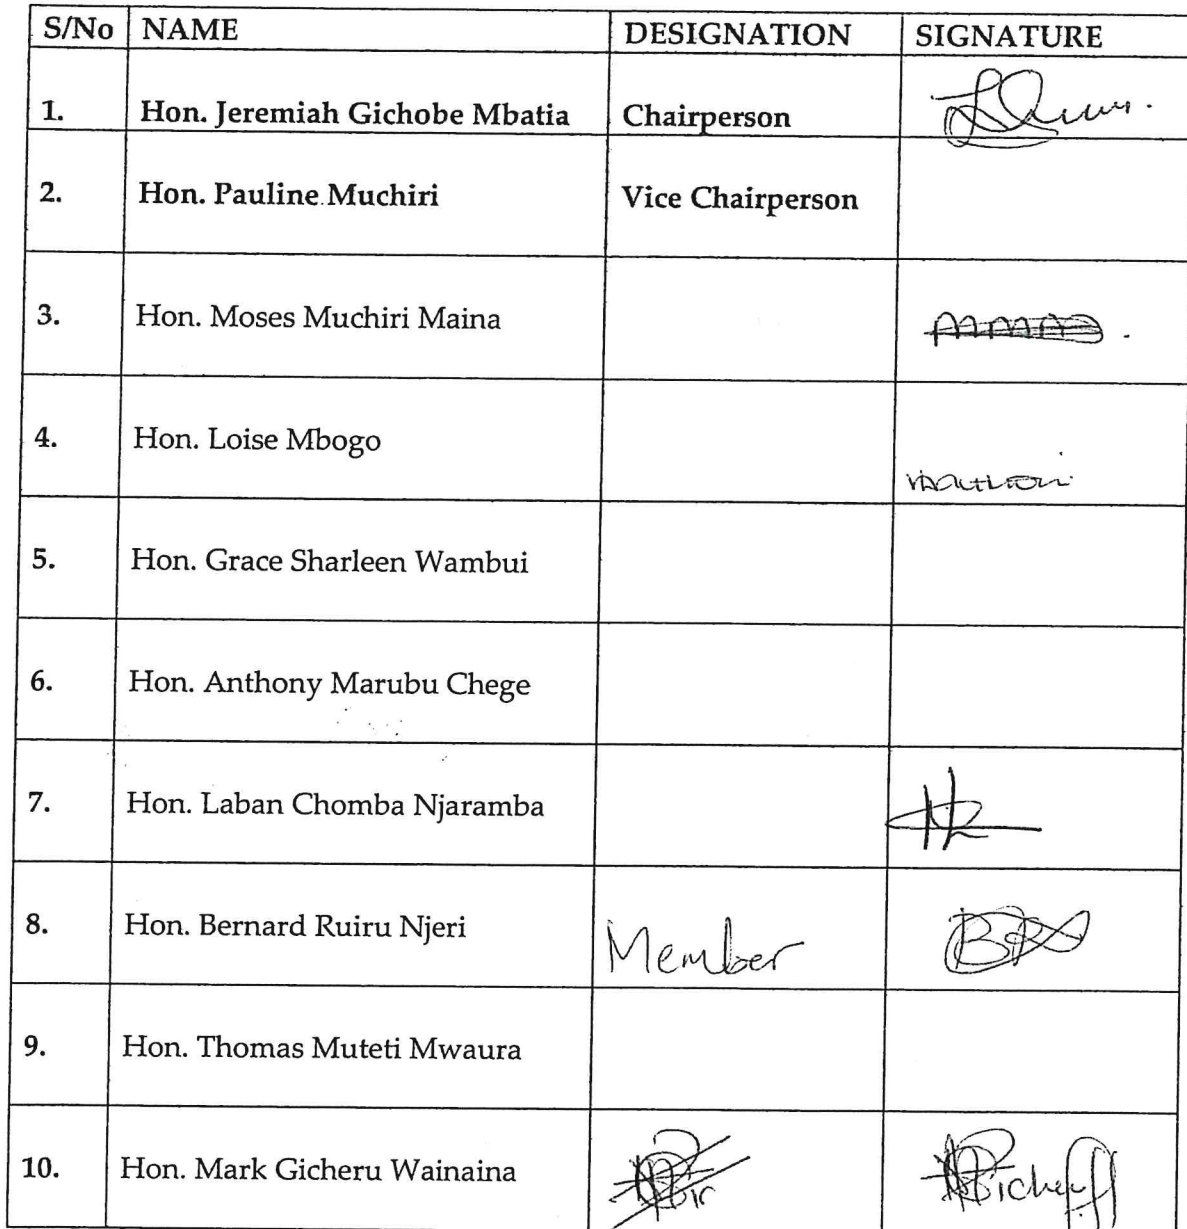 S/No NAME DESIGNATION SIGNATURE
1. Hon. Jeremiah Gichobe Mbatia Chairperson
2. Hon. Pauline Muchiri Vice Chairperson
3. Hon. Moses Muchiri Maina
4. Hon. Loise Mbogo
5. Hon. Grace Sharleen Wambui
6. Hon. Anthony Marubu Chege
7. Hon. Laban Chomba Njaramba
8. Hon. Bernard Ruiru Njeri Member
9. Hon. Thomas Muteti Mwaura
10. Hon. Mark Gicheru Wainaina